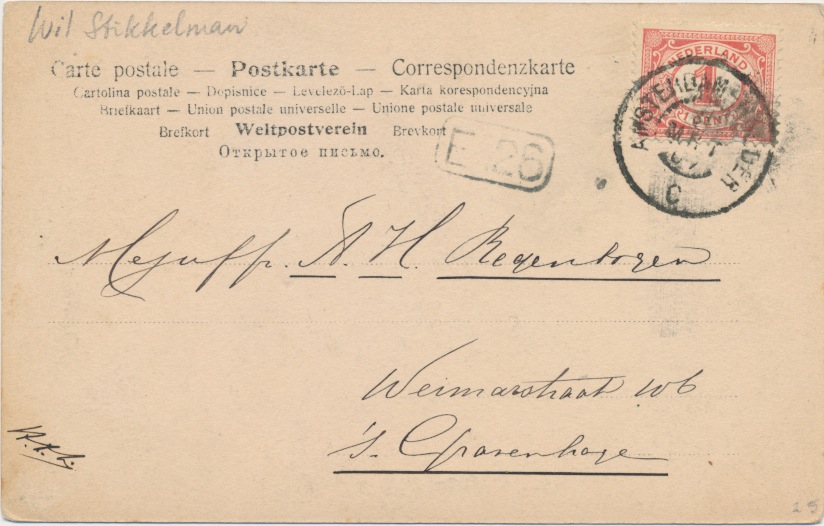 Wil Stikkelman
NEDERLAND
1
CENT
Carte postale — Postkarte — Correspondenzkarte
Cartolina postale — Dopisnice — Levelező-Lap — Karta korespondencyjna
Briefkaart — Union postale universelle — Unione postale universale
Brefkort Weltpostverein Brevkort
Открытое письмо.
E 26
AMSTERDAM
C
Mejuffr. A. H. Regenbogen
Weimarstraat 106
's Gravenhage
25